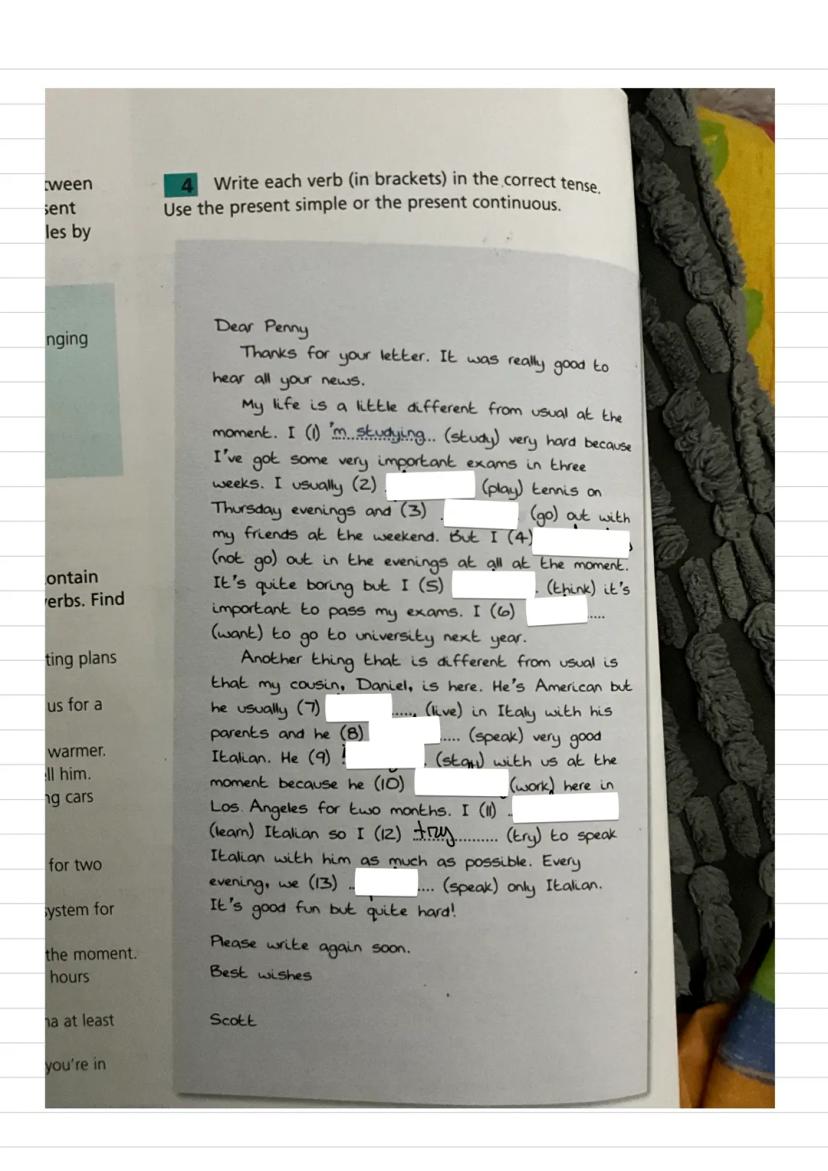 tween
sent
les by
nging
ontain
erbs. Find
ting plans
us for a
warmer.
ll him.
ng cars
for two
ystem for
the moment.
hours
na at least
you're in
4 Write each verb (in brackets) in the correct tense.
Use the present simple or the present continuous.
Dear Penny
Thanks for your letter. It was really good to
hear all your news.
My life is a little different from usual at the
moment. I (1) 'm studying... (study) very hard because
I've got some very important exams in three
weeks. I usually (2) (play) tennis on
Thursday evenings and (3) . (go) out with
my friends at the weekend. But I (4)
(not go) out in the evenings at all at the moment.
It's quite boring but I (5) . (think) it's
important to pass my exams. I (6) ....
(want) to go to university next year.
Another thing that is different from usual is
that my cousin, Daniel, is here. He's American but
he usually (7) ..... (live) in Italy with his
parents and he (8) .... (speak) very good
Italian. He (9) . (stay) with us at the
moment because he (10) (work) here in
Los Angeles for two months. I (11) .
(learn) Italian so I (12) try.......... (try) to speak
Italian with him as much as possible. Every
evening, we (13) .. .... (speak) only Italian.
It's good fun but quite hard!
Please write again soon.
Best wishes
Scott